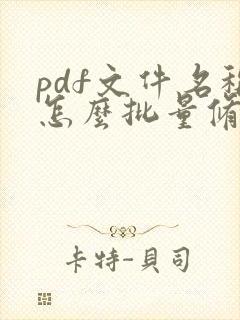 pdf文件名
怎麽批量
卡特-貝司